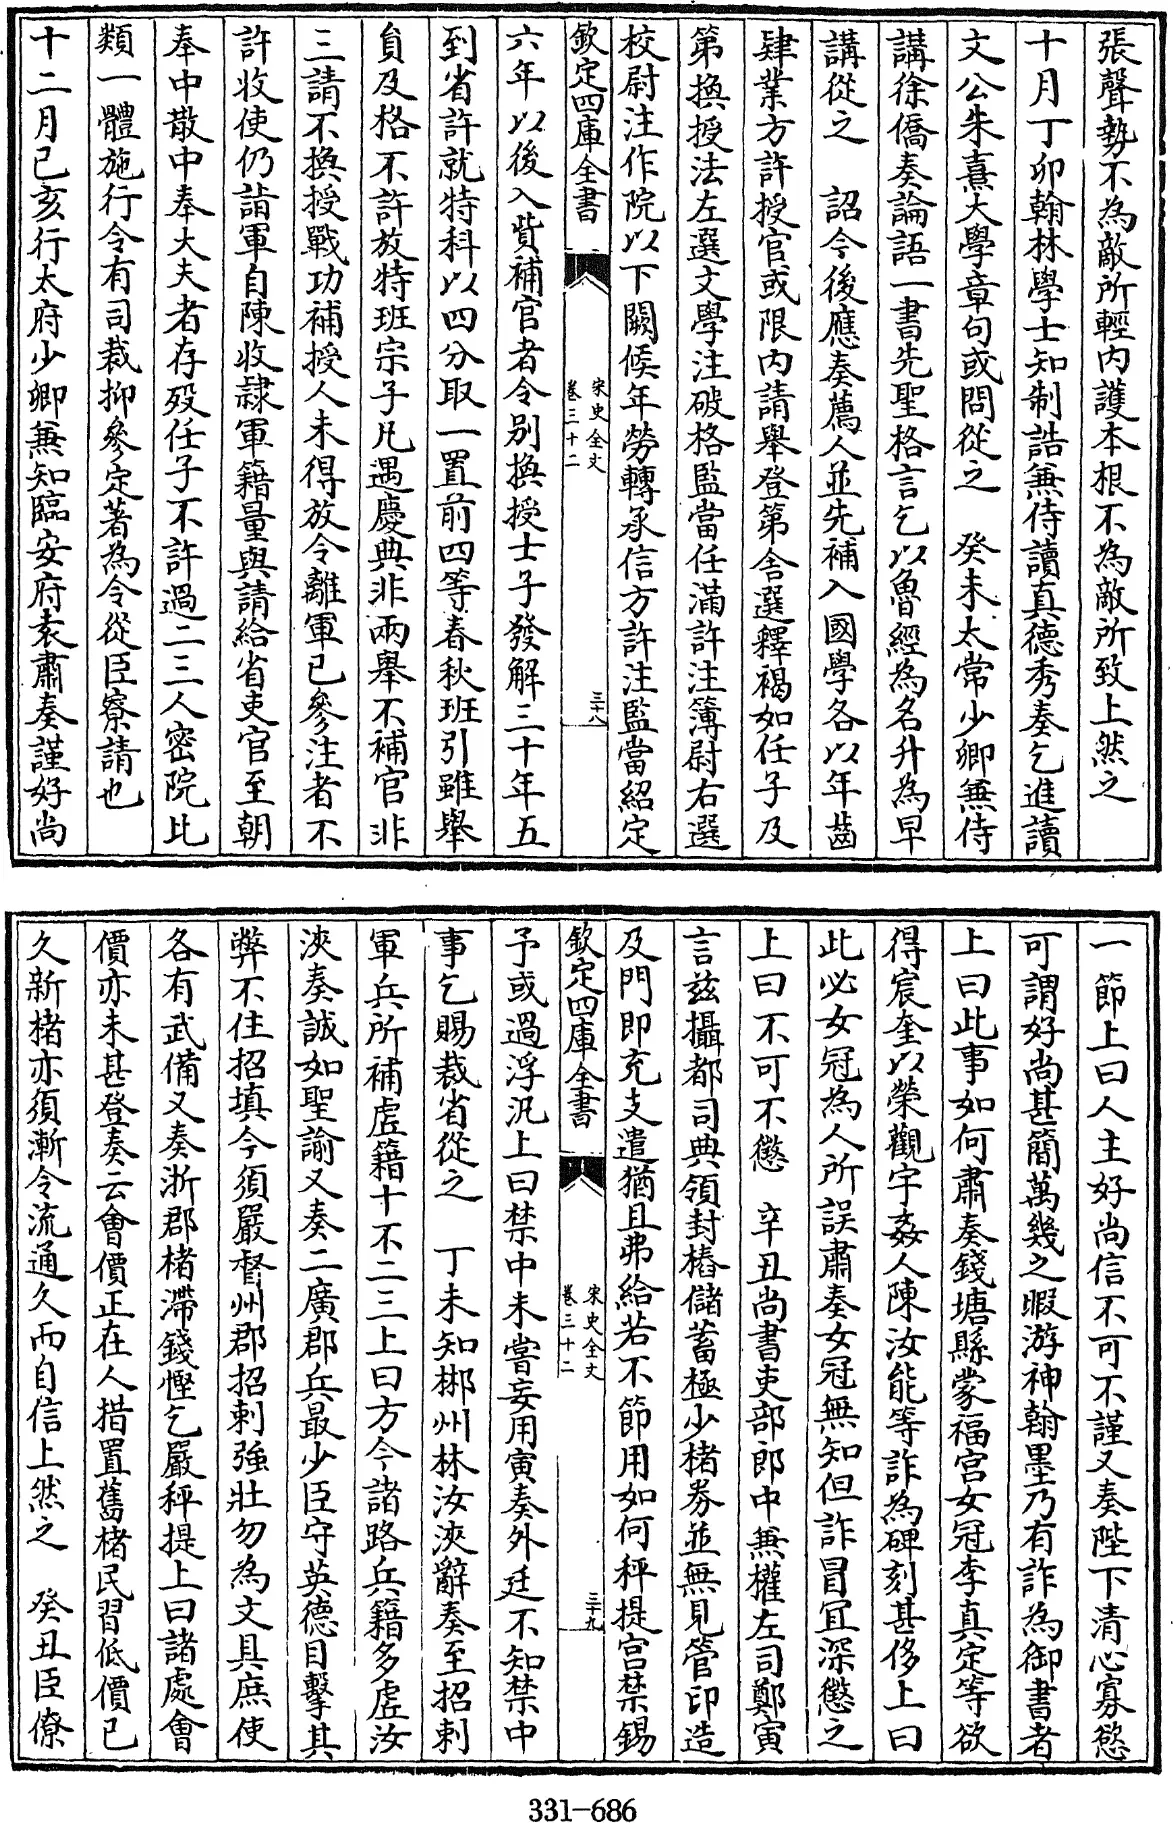 張聲勢不為敵所輕内護本根不為敵所致上然之
十月丁卯翰林學士知制誥兼侍讀真德秀奏乞進讀
文公朱熹大學章句或問從之　癸未太常少卿兼侍
講徐僑奏論語一書先聖格言乞以魯經為名升為早
講從之　詔今後應奏薦人並先補入國學各以年齒
肄業方許授官或限内請舉登第舍選釋褐如任子及
第換授法左選文學注破格監當任滿許注簿尉右選
校尉注作院以下闕候年勞轉承信方許注監當紹定
欽定四庫全書　宋史全文卷三十二　三十八
六年以後入貲補官者令别換授士子發解三十年五
到省許就特科以四分取一置前四等春秋班引雖舉
負及格不許放特班宗子凡遇慶典非兩舉不補官非
三請不換授戰功補授人未得放令離軍已參注者不
許收使仍詣軍自陳收隸軍籍量與請給省吏官至朝
奉中散中奉大夫者存殁任子不許過二三人密院比
類一體施行令有司裁抑參定著為令從臣寮請也
十二月己亥行太府少卿兼知臨安府袁肅奏謹好尚
一節上曰人主好尚信不可不謹又奏陛下清心寡慾
可謂好尚甚簡萬幾之暇游神翰墨乃有詐為御書者
上曰此事如何肅奏錢塘縣蒙福宫女冠李真定等欲
得宸奎以榮觀宇姦人陳汝能等詐為碑刻甚侈上曰
此必女冠為人所誤肅奏女冠無知但詐冒宜深懲之
上曰不可不懲　辛丑尚書吏部郎中兼權左司鄭寅
言兹攝都司典領封樁儲蓄極少楮券並無見管印造
及門即充支遣猶且弗給若不節用如何秤提宫禁錫
欽定四庫全書　宋史全文卷三十二　三十九
予或過浮汎上曰禁中未嘗妄用寅奏外廷不知禁中
事乞賜裁省從之　丁未知郴州林汝浹辭奏至招刺
軍兵所補虛籍十不二三上曰方今諸路兵籍多虛汝
浹奏誠如聖諭又奏二廣郡兵最少臣守英德目擊其
弊不住招填今須嚴督州郡招刺強壯勿為文具庶使
各有武備又奏浙郡楮滯錢慳乞嚴秤提上曰諸處會
價亦未甚登奏云會價正在人措置舊楮民習低價已
久新楮亦須漸令流通久而自信上然之　癸丑臣僚
331-686